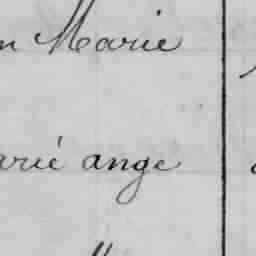 n Marie
arie ange